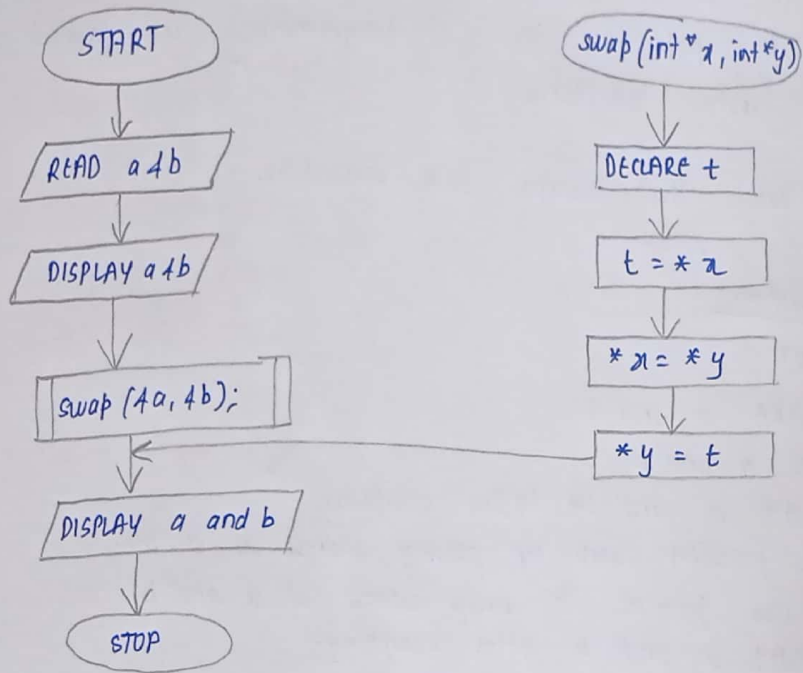 START
READ a & b
DISPLAY a & b
swap (&a, &b);
DISPLAY a and b
STOP
swap (int * x, int * y)
DECLARE t
t = * x
* x = * y
* y = t